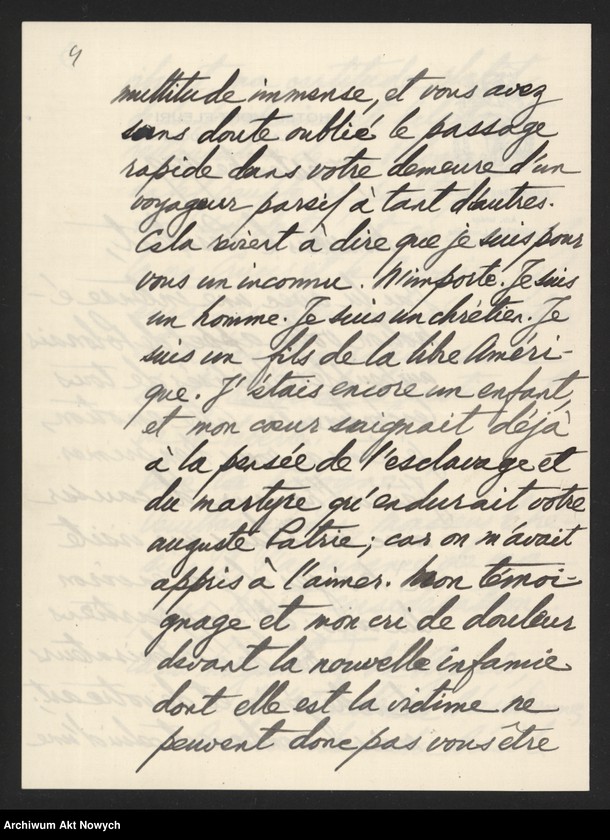 4
multitude immense, et vous avez
sans doute oublié le passage
rapide dans votre demeure d'un
voyageur pareil à tant d'autres.
Cela revient à dire que je suis pour
vous un inconnu. N'importe. Je suis
un homme. Je suis un chrétien. Je
suis un fils de la libre Améri-
que. J'étais encore un enfant,
et mon cœur saignait déjà
à la pensée de l'esclavage et
du martyre qu'endurait votre
auguste Patrie; car on m'avait
appris à l'aimer. Mon témoi-
gnage et mon cri de douleur
devant la nouvelle infamie
dont elle est la victime ne
peuvent donc pas vous être
Archiwum Akt Nowych